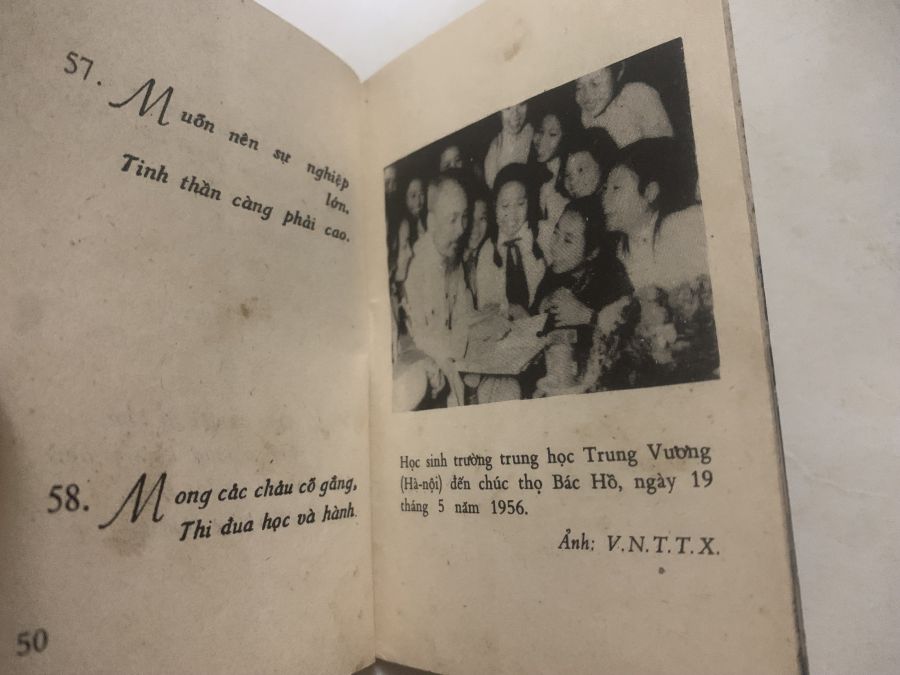 57. Muốn nên sự nghiệp
lớn,
Tinh thần càng phải cao.
58. Mong các cháu cố gắng,
Thi đua học và hành.
50
Học sinh trường trung học Trung Vương
(Hà-nội) đến chúc thọ Bác Hồ, ngày 19
tháng 5 năm 1956.
Ảnh: V.N.T.T.X.